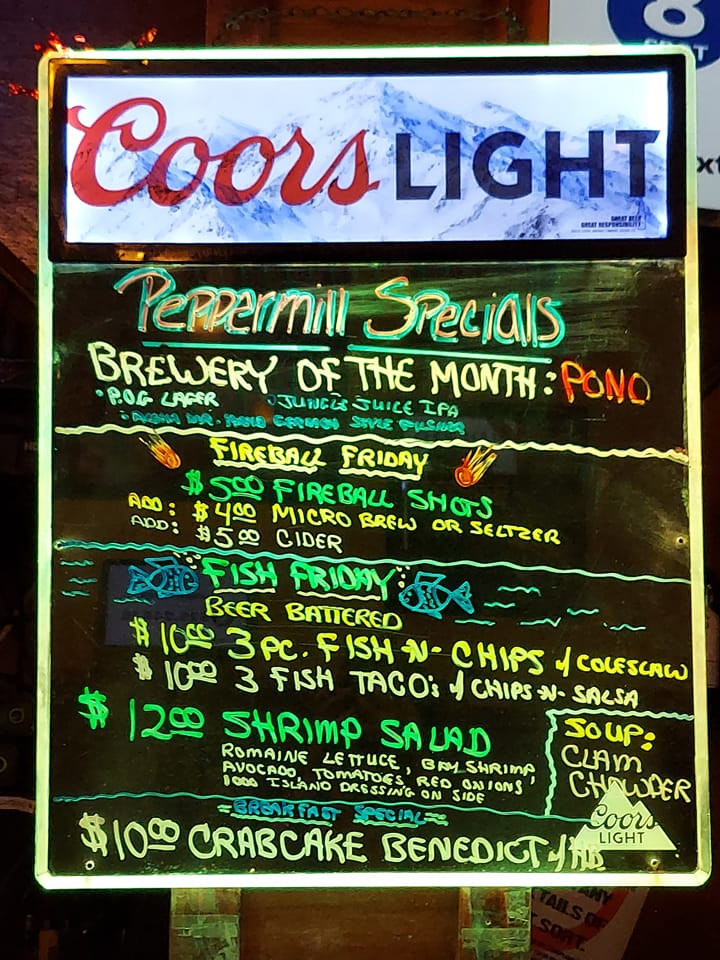 8
Coors LIGHT
GREAT BEER
GREAT RESPONSIBILITY
Peppermill Specials
BREWERY OF THE MONTH: PONO
• P.O.G LAGER • JUNGLE JUICE IPA
GERMAN STYLE PILSNER
FIREBALL FRIDAY
$5.00 FIREBALL SHOTS
ADD: $4.00 MICRO BREW OR SELTZER
ADD: $5.00 CIDER
FISH FRIDAY
BEER BATTERED
$10.00 3 PC. FISH -N- CHIPS w/ COLESLAW
$10.00 3 FISH TACO's w/ CHIPS -N- SALSA
$12.00 SHRIMP SALAD
ROMAINE LETTUCE, BAY SHRIMP,
AVOCADO, TOMATOES, RED ONIONS,
1000 ISLAND DRESSING ON SIDE
SOUP:
CLAM
CHOWDER
Coors
LIGHT
=BREAKFAST SPECIAL=
$10.00 CRABCAKE BENEDICT w/ HB
ANY
TAILS OF
SORT.